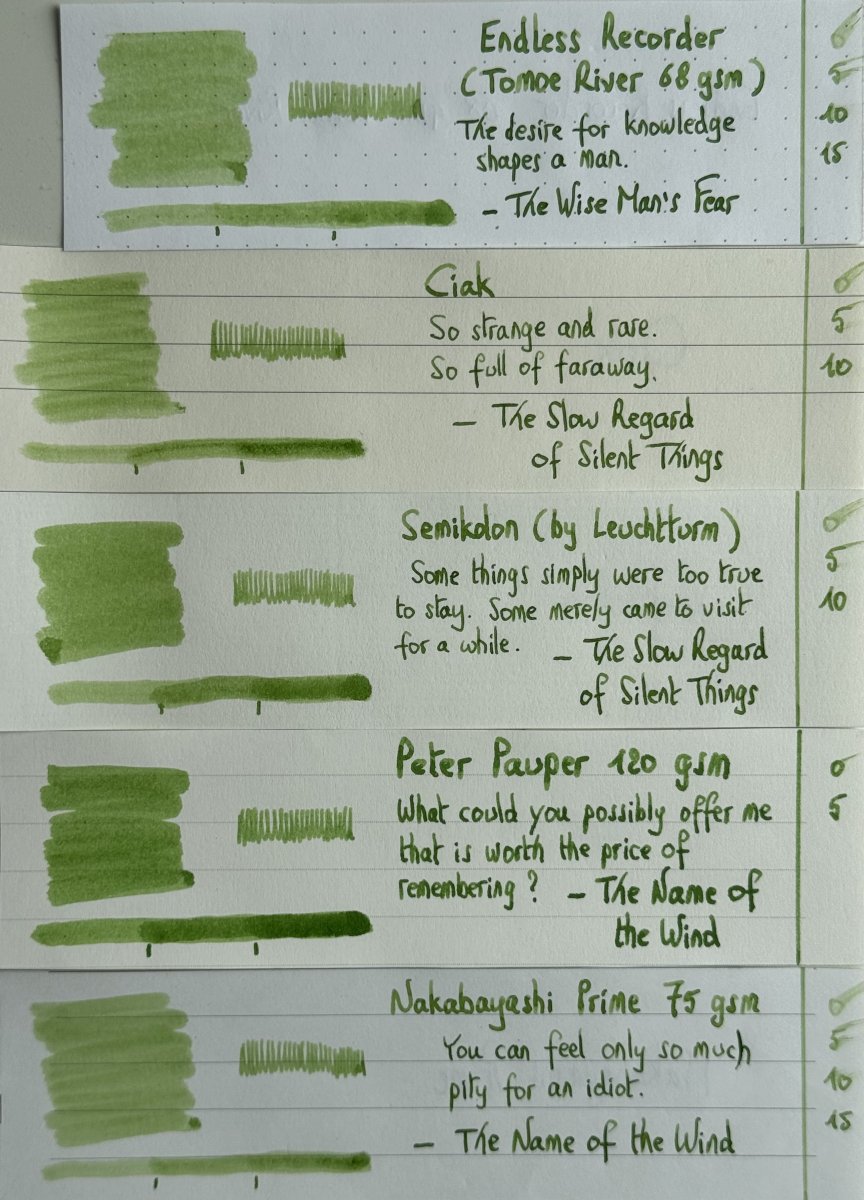 Endless Recorder
(Tomoe River 68 gsm)
The desire for knowledge
shapes a man.
– The Wise Man's Fear
0
5
10
15
Ciak
So strange and rare.
So full of faraway.
– The Slow Regard
of Silent Things
0
5
10
Semikolon (by Leuchtturm)
Some things simply were too true
to stay. Some merely came to visit
for a while. – The Slow Regard
of Silent Things
0
5
10
Peter Pauper 120 gsm
What could you possibly offer me
that is worth the price of
remembering? – The Name of
the Wind
0
5
Nakabayashi Prime 75 gsm
You can feel only so much
pity for an idiot.
– The Name of the Wind
0
5
10
15